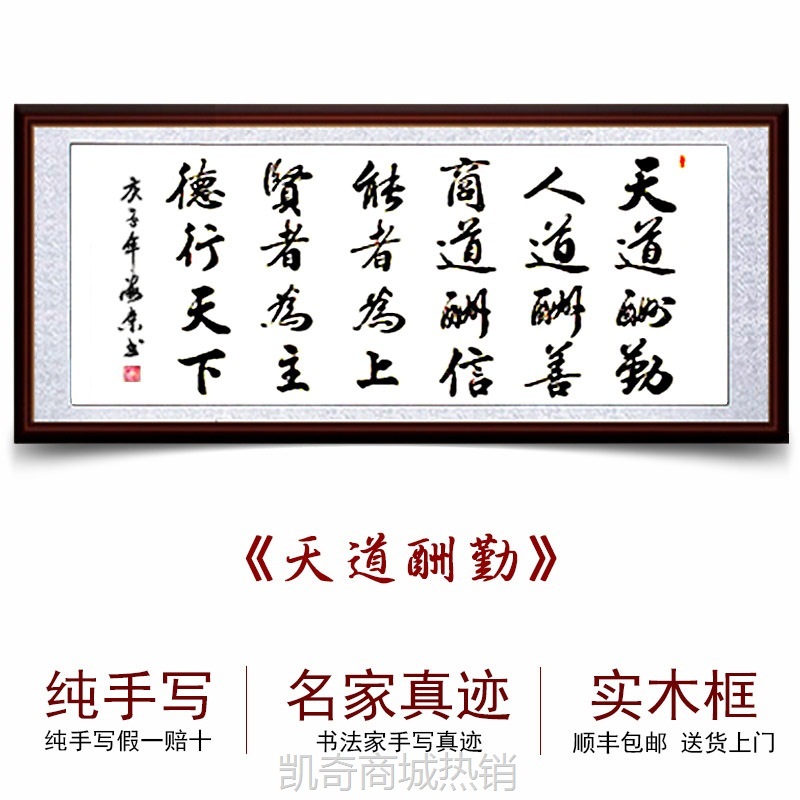 天道酬勤
人道酬善
商道酬信
能者為上
賢者為主
德行天下
庚子年
《天道酬勤》
纯手写
纯手写假一赔十
名家真迹
书法家手写真迹
实木框
顺丰包邮 送货上门
凯奇商城热销